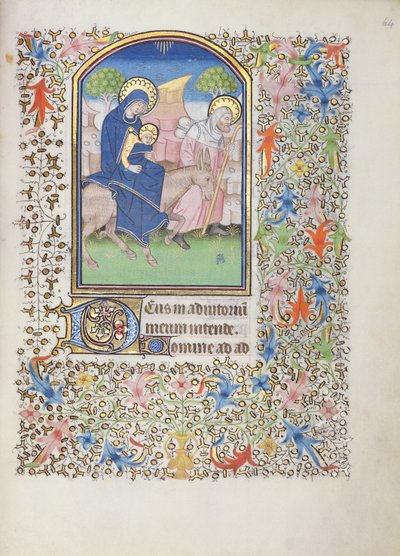 64
Deus in adiutoriū
meum intende.
Domine ad ad